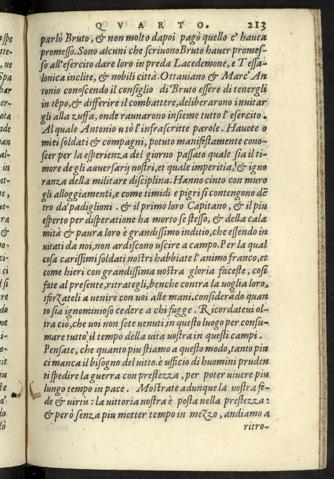 QVARTO. 213
parlò Bruto, & non molto dapoi pagò quello c' haueа
promesso. Sono alcuni che scriuono Bruto hauer promes-
so all'esercito dare loro in preda Lacedemone, e Tessa-
lonica inclite, & nobili città. Ottauiano & Marc' An
tonio conoscendo il consiglio di Bruto essere di tenergli
in tēpo, & differire il combattere, deliberarono inuitar
gli alla zuffa, onde raunarono insieme tutto l' esercito.
Al quale Antonio usò l'infrascritte parole. Hauete o
miei soldati & compagni, potuto manifestamente cono-
scer per la esperienza del giorno passato quale sia il ti-
more de gli auuersarij nostri, et quale imperitia, & igno
ranza della militare disciplina. Hanno cinto con muro
gli alloggiamenti, e come timidi e pigri si contengono dē
tro da padiglioni. & il primo loro Capitano, & il piu
esperto per disperatione ha morto se stesso, & della cala
mità & paura loro è grandissimo inditio, che essendo in
uitati da noi, non ardiscono uscire a campo. Per la qual
cosa carissimi soldati nostri habbiate l' animo franco, et
come hieri con grandissima uostra gloria faceste, cosi
fate al presente, ritrategli, benche contra la uoglia loro,
sforzateli a uenire con uoi alle mani. considerado quan
to sia ignominioso cedere a chi fugge. Ricordateui ol-
tra ciò, che uoi non sete uenuti in questo luogo per consu-
mare tutto'l tempo della vita uostra in questi campi.
Pensate, che quanto piu stiamo a questo modo, tanto piu
ci manca il bisogno del uitto. è ufficio di huomini pruden
ti spedire la guerra con prestezza, per poter uiuere piu
lungo tempo in pace. Mostrate adunque la uostra fe-
de & uirtù: la uittoria nostra è posta nella prestezza:
& però senza piu metter tempo in mezzo, andiamo a
ritro-